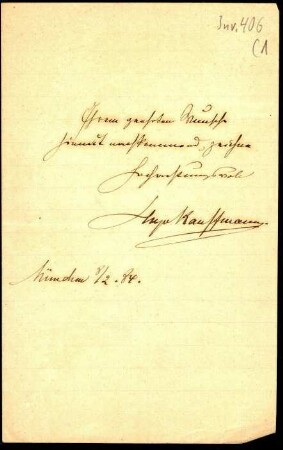 Inv. 406
C1
Ihrem geehrten Wunsche
hiemit nachkommend, zeichne
Hochachtungsvoll
Hugo Kauffmann.
München 8/2. 84.